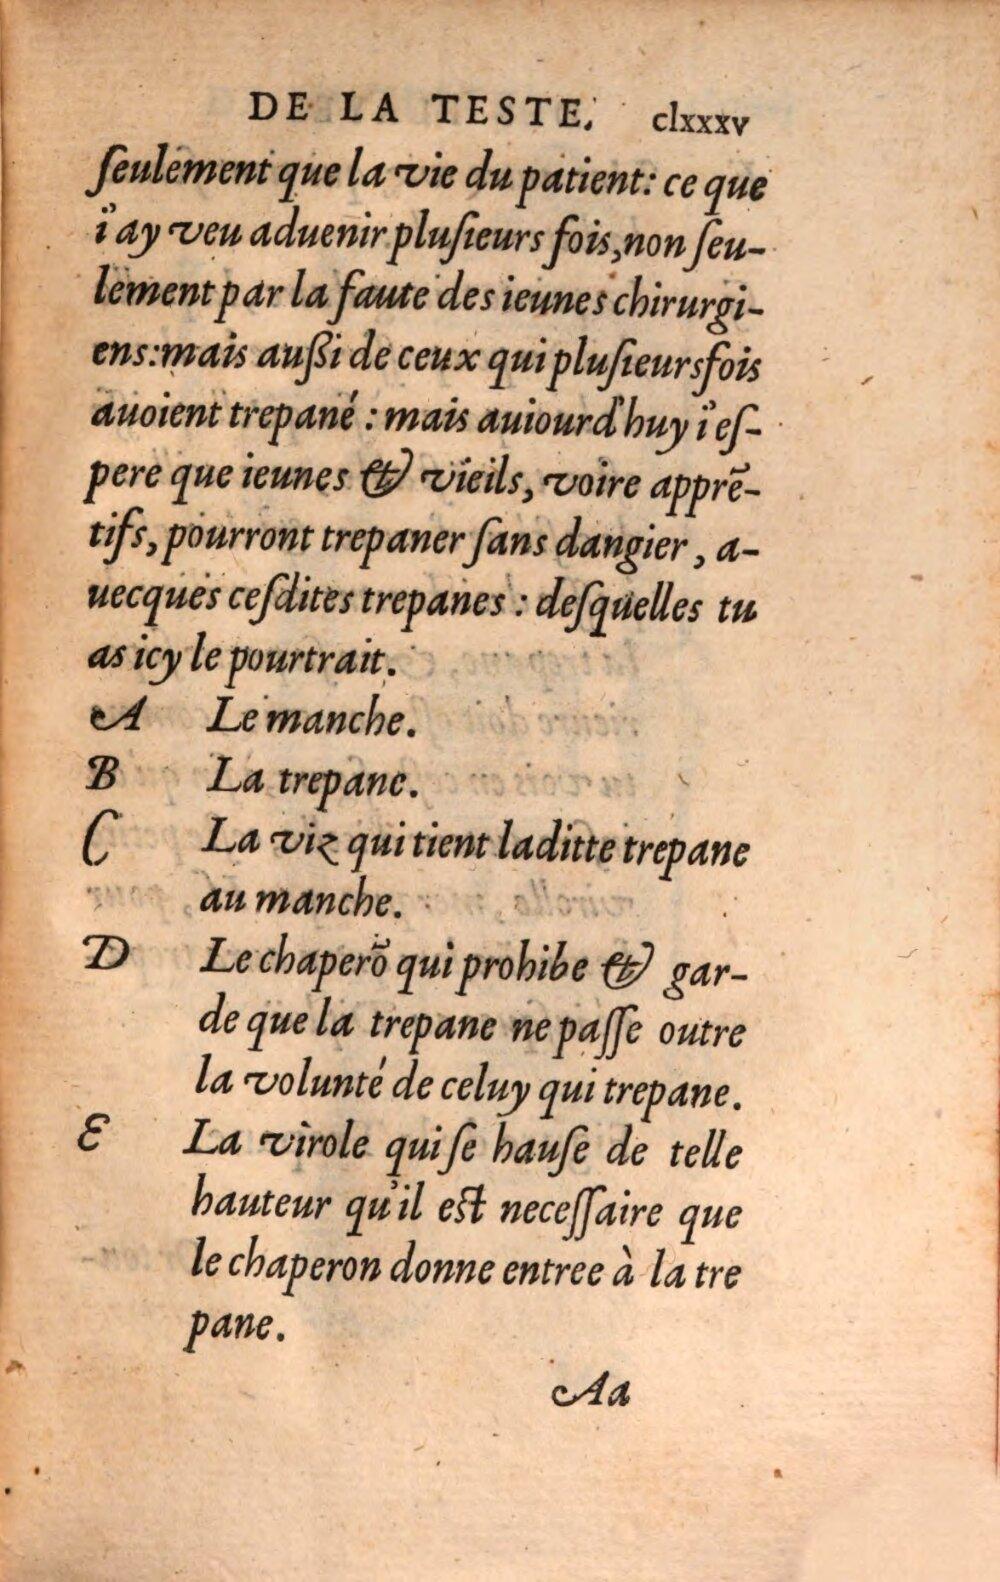 DE LA TESTE. clxxxv
ſeulement que la vie du patient: ce que
i'ay veu aduenir pluſieurs fois, non ſeu-
lement par la faute des ieunes chirurgi-
ens: mais außi de ceux qui pluſieurs fois
auoient trepané : mais auiourd'huy i'eſ-
pere que ieunes & vieils, voire apprẽ-
tifs, pourront trepaner ſans dangier, a-
uecques ceſdites trepanes : deſquelles tu
as icy le pourtrait.
A Le manche.
B La trepane.
C La viz qui tient laditte trepane
au manche.
D Le chaperõ qui prohibe & gar-
de que la trepane ne paſſe outre
la volunté de celuy qui trepane.
E La virole qui ſe hauſe de telle
hauteur qu'il eſt neceſſaire que
le chaperon donne entree à la tre
pane.
Aa